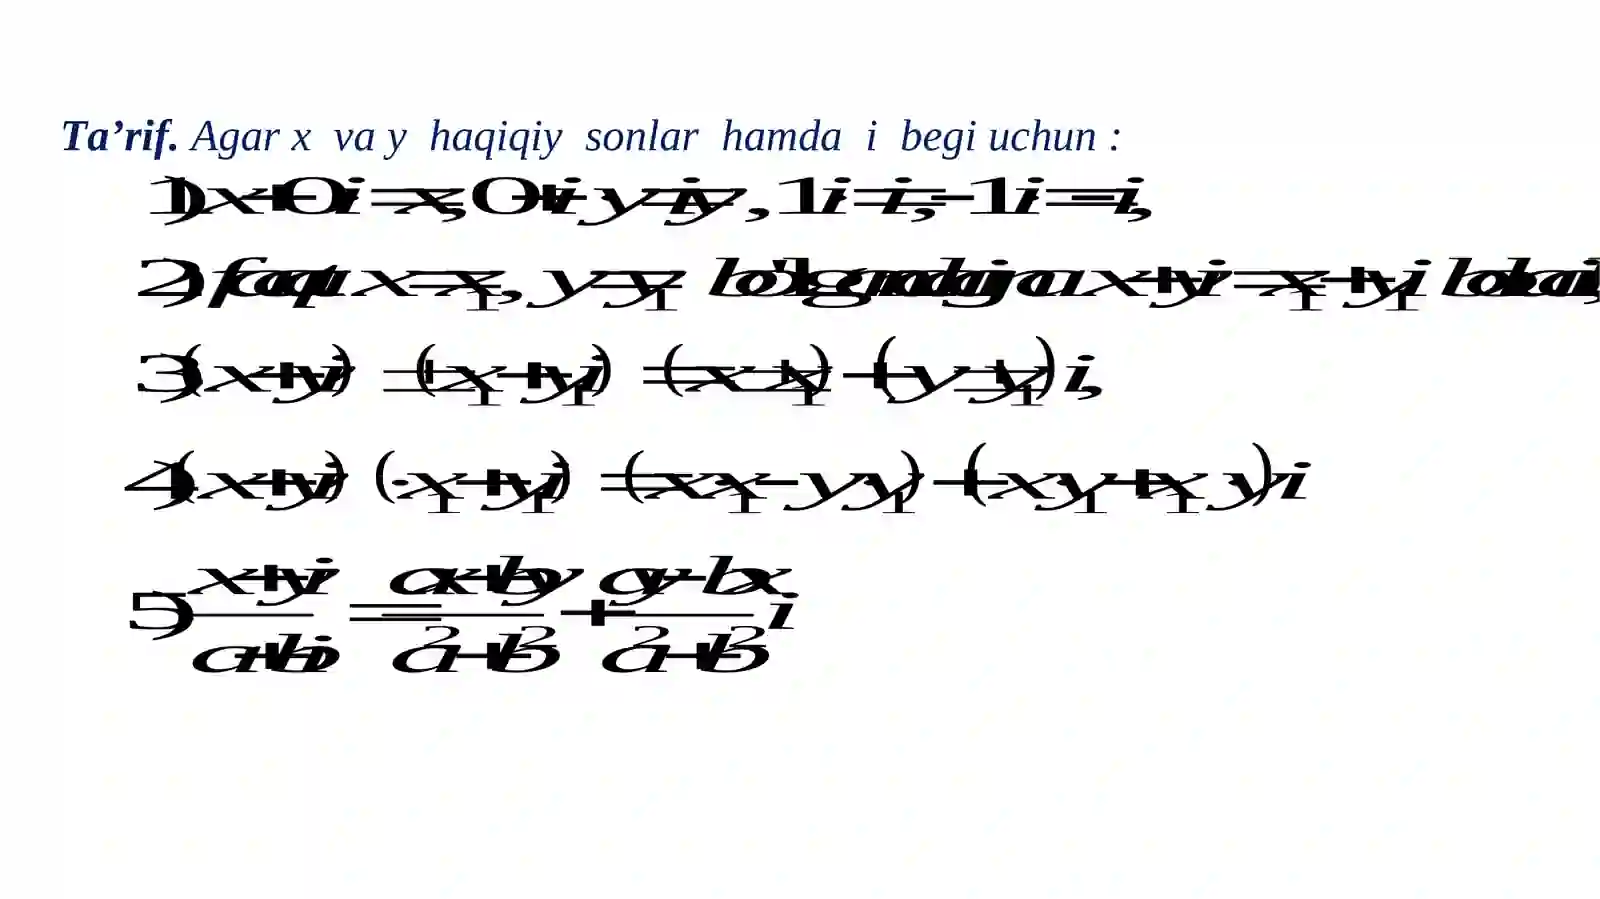 Ta’rif. Agar x va y haqiqiy sonlar hamda i begi uchun :
1) x+0i=x, 0+iy=iy, 1i=i, -1i=-i,
2) faqat x=x₁, y=y₁ x+yi=x₁+y₁i
3) (x+yi) (x₁+y₁i) = (x x₁) + (y y₁) i,
4) (x+yi)·(x₁+y₁i) = (xx₁-yy₁)+(xy₁+x₁y)i
5) (x+yi)/(a+bi) = (ax+by)/(a²+b²) + (ay-bx)/(a²+b²) i